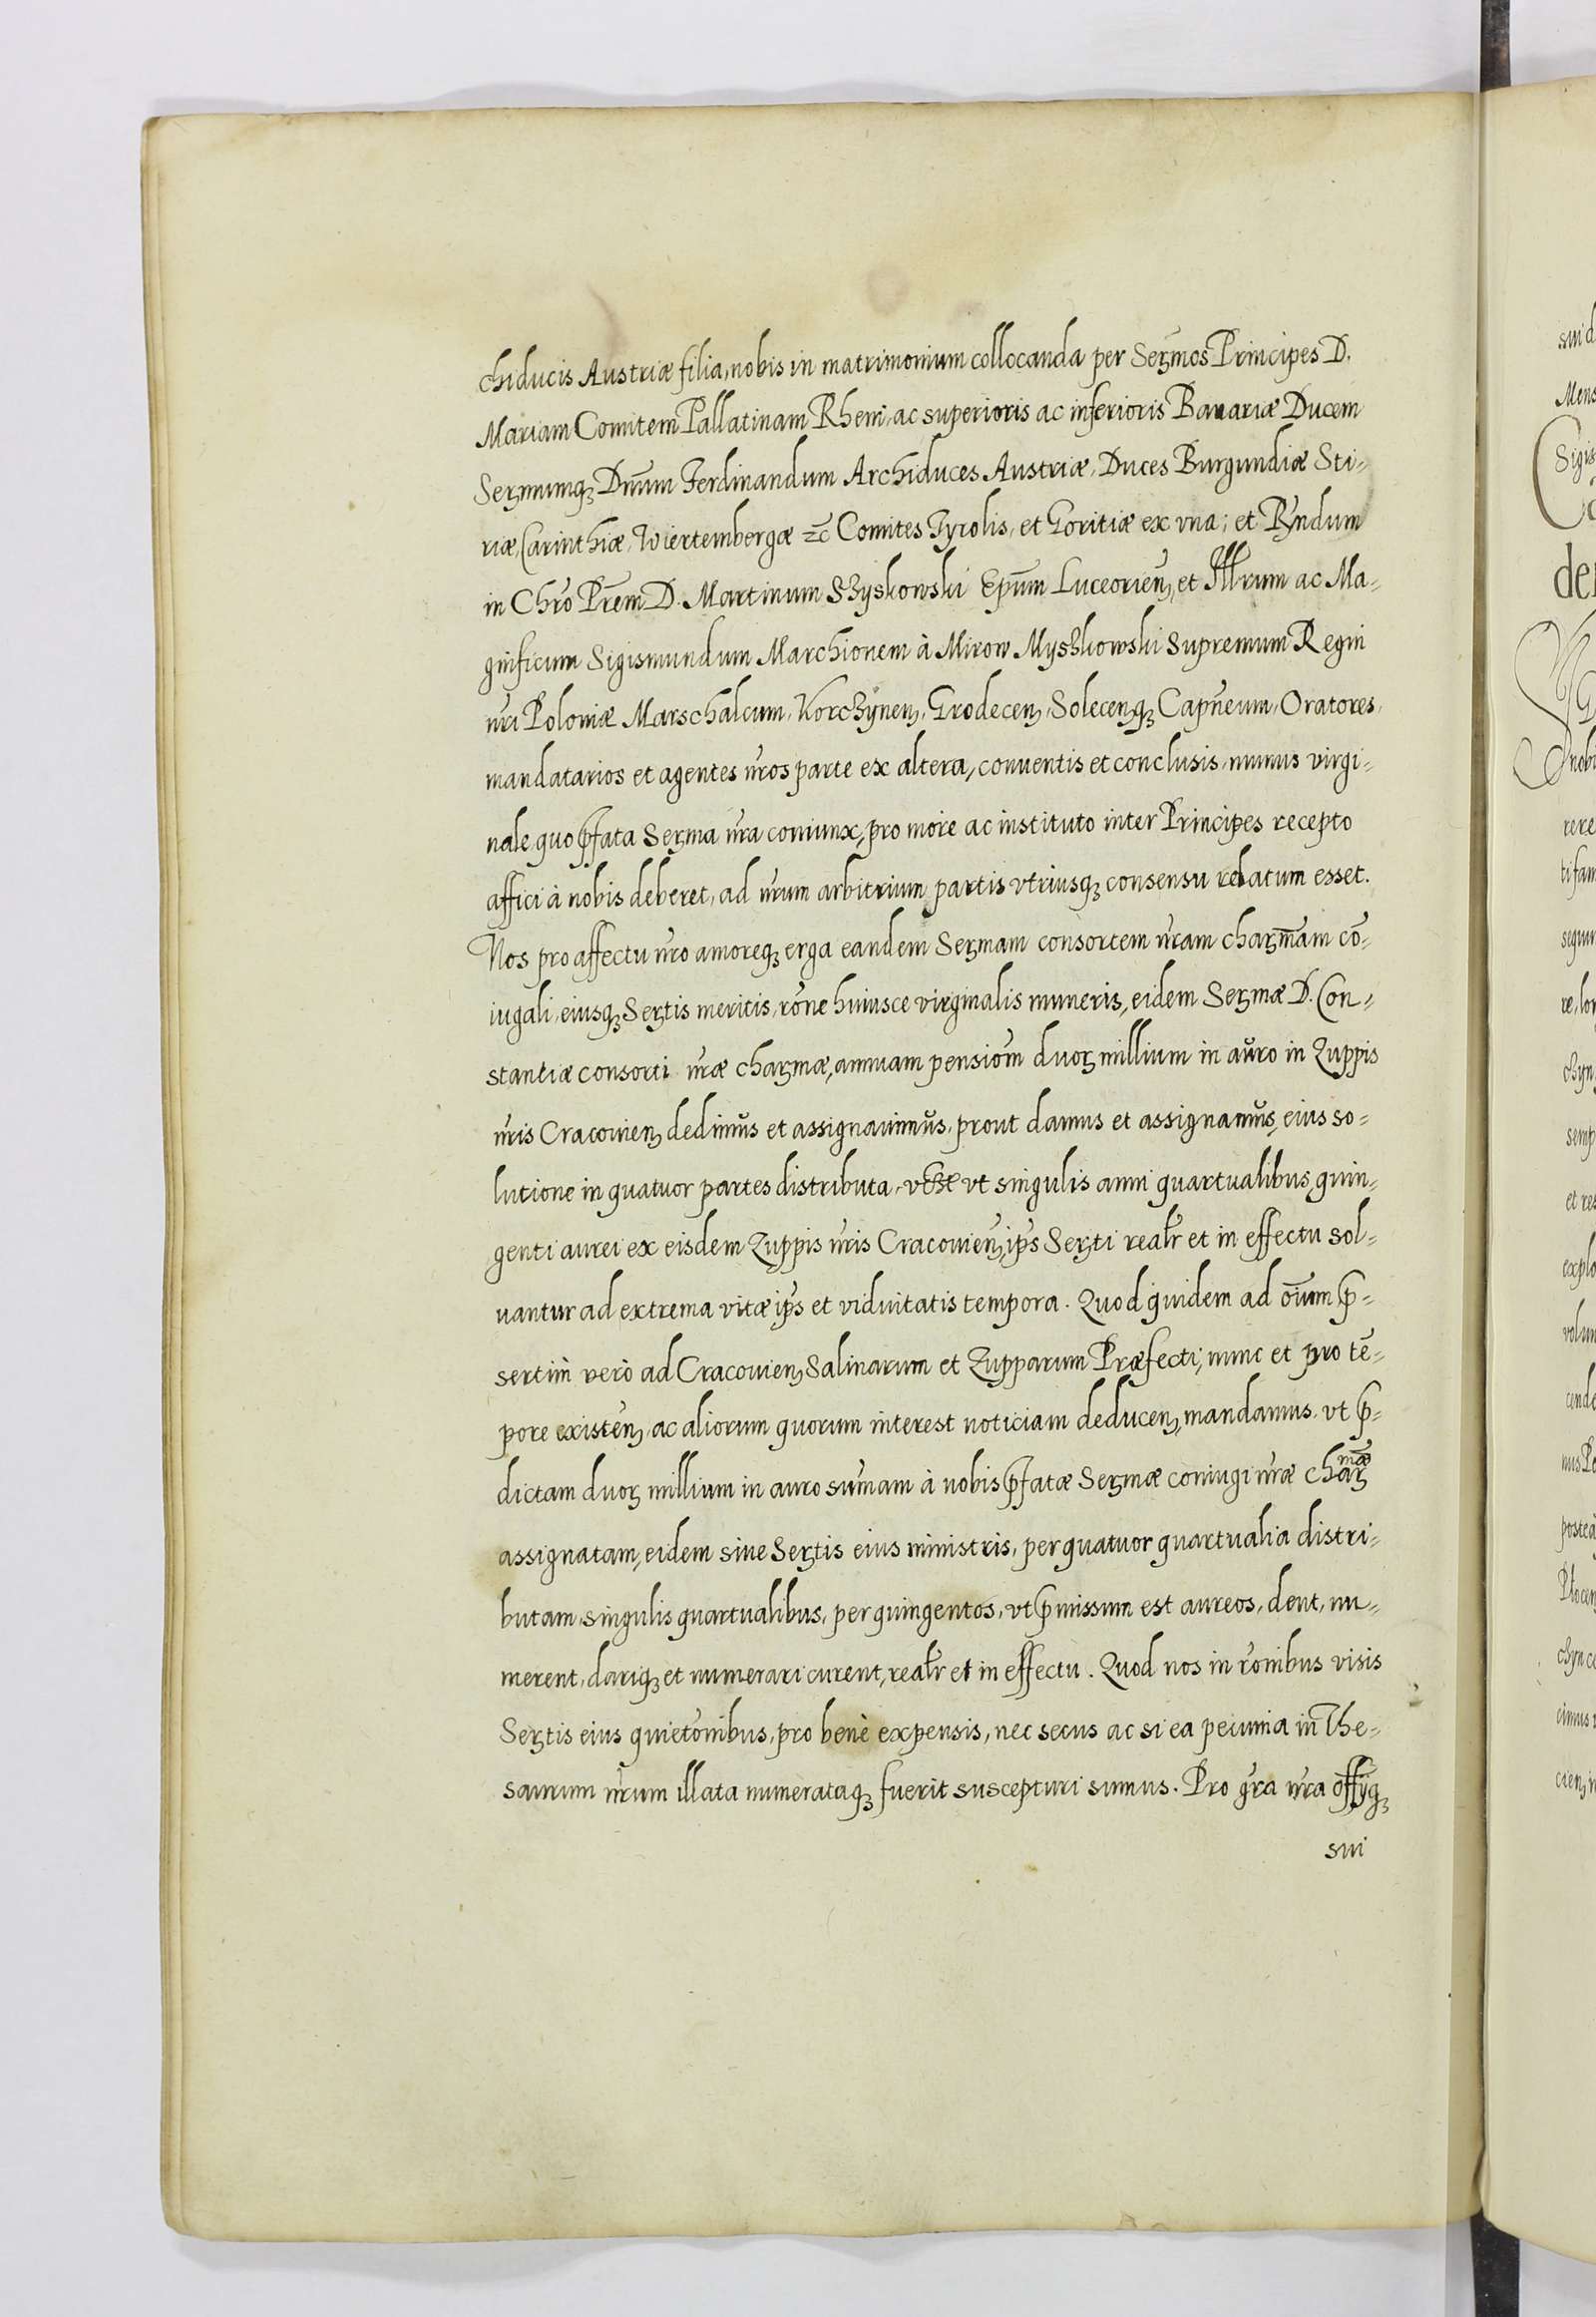 chiducis Austriæ filia, nobis in matrimonium collocanda per Serꝫmos Principes D.
Mariam Comitem Pallatinam Rheni, ac superioris ac inferioris Bavariæ Ducem
Serꝫmumqꝫ Dnūm Ferdinandum Archiduces Austriæ, Duces Burgundiæ Sti-
riæ, Carinthiæ, Wiertembergæ ꝛc̄ Comites Tyrolis, et Goritiæ ex vna; et Rn̄dum
in Chr̄o Prēm D. Martinum Szyskowski Epūm Luceorien̄, et Illrum ac Ma-
gnificum Sigismundum Marchionem à Mirow Myszkowski Supremum Regni
nr̄i Poloniæ Marschalcum, Korczynenꝫ, Grodecenꝫ, Solecenꝫqꝫ Capn̄eum, Oratores,
mandatarios et agentes nr̄os parte ex altera, conuentis et conclusis, munus virgi-
nale, quo p̄fata Serꝫma nr̄a coniunx, pro more ac instituto inter Principes recepto
affici à nobis deberet, ad nr̄um arbitrium partis vtriusqꝫ consensu relatum esset.
Nos pro affectu nr̄o amoreqꝫ erga eandem Serꝫmam consortem nr̄am charꝫmam cō-
iugali, eiusqꝫ Serꝫtis meritis, rōne huiusce virginalis muneris, eidem Serꝫmæ D. Con-
stantiæ consorti nr̄æ charꝫmæ, annuam pensiōm duorꝫ millium in aŭro in Zuppis
nr̄is Cracouienꝫ dedimŭs et assignauimŭs, prout damus et assignamŭs, eius so-
lutione in quatuor partes distributa, vt singulis anni quartualibus, quin-
genti aurei ex eisdem Zuppis nr̄is Cracouienꝫ, ip̄s Serꝫti realr̄ et in effectu sol-
uantur ad extrema vitæ ip̄s et viduitatis tempora. Quod quidem ad oīum p̄-
sertim verò ad Cracouienꝫ Salinarum et Zupparum Præfecti, nunc et pro tē-
pore existēnꝫ, ac aliorum quorum interest noticiam deducenꝫ, mandamus, vt p̄-
dictam duorꝫ millium in auro sum̄am à nobis p̄fatæ Serꝫmæ coniugi nr̄æ charꝫmæ
assignatam, eidem siue Serꝫtis eius ministris, per quatuor quartualia distri-
butam, singulis quartualibus, per quingentos, vt p̄missum est aureos, dent, nu-
merent, dariqꝫ et numerari curent, realr̄ et in effectu. Quod nos in rōnibus visis
Serꝫtis eius quietōnibus, pro benè expensis, nec secus ac si ea pecunia in The-
saurum nr̄um illata numerataqꝫ fuerit suscepturi sumus. Pro gr̄a nr̄a off̄yqꝫ
sui